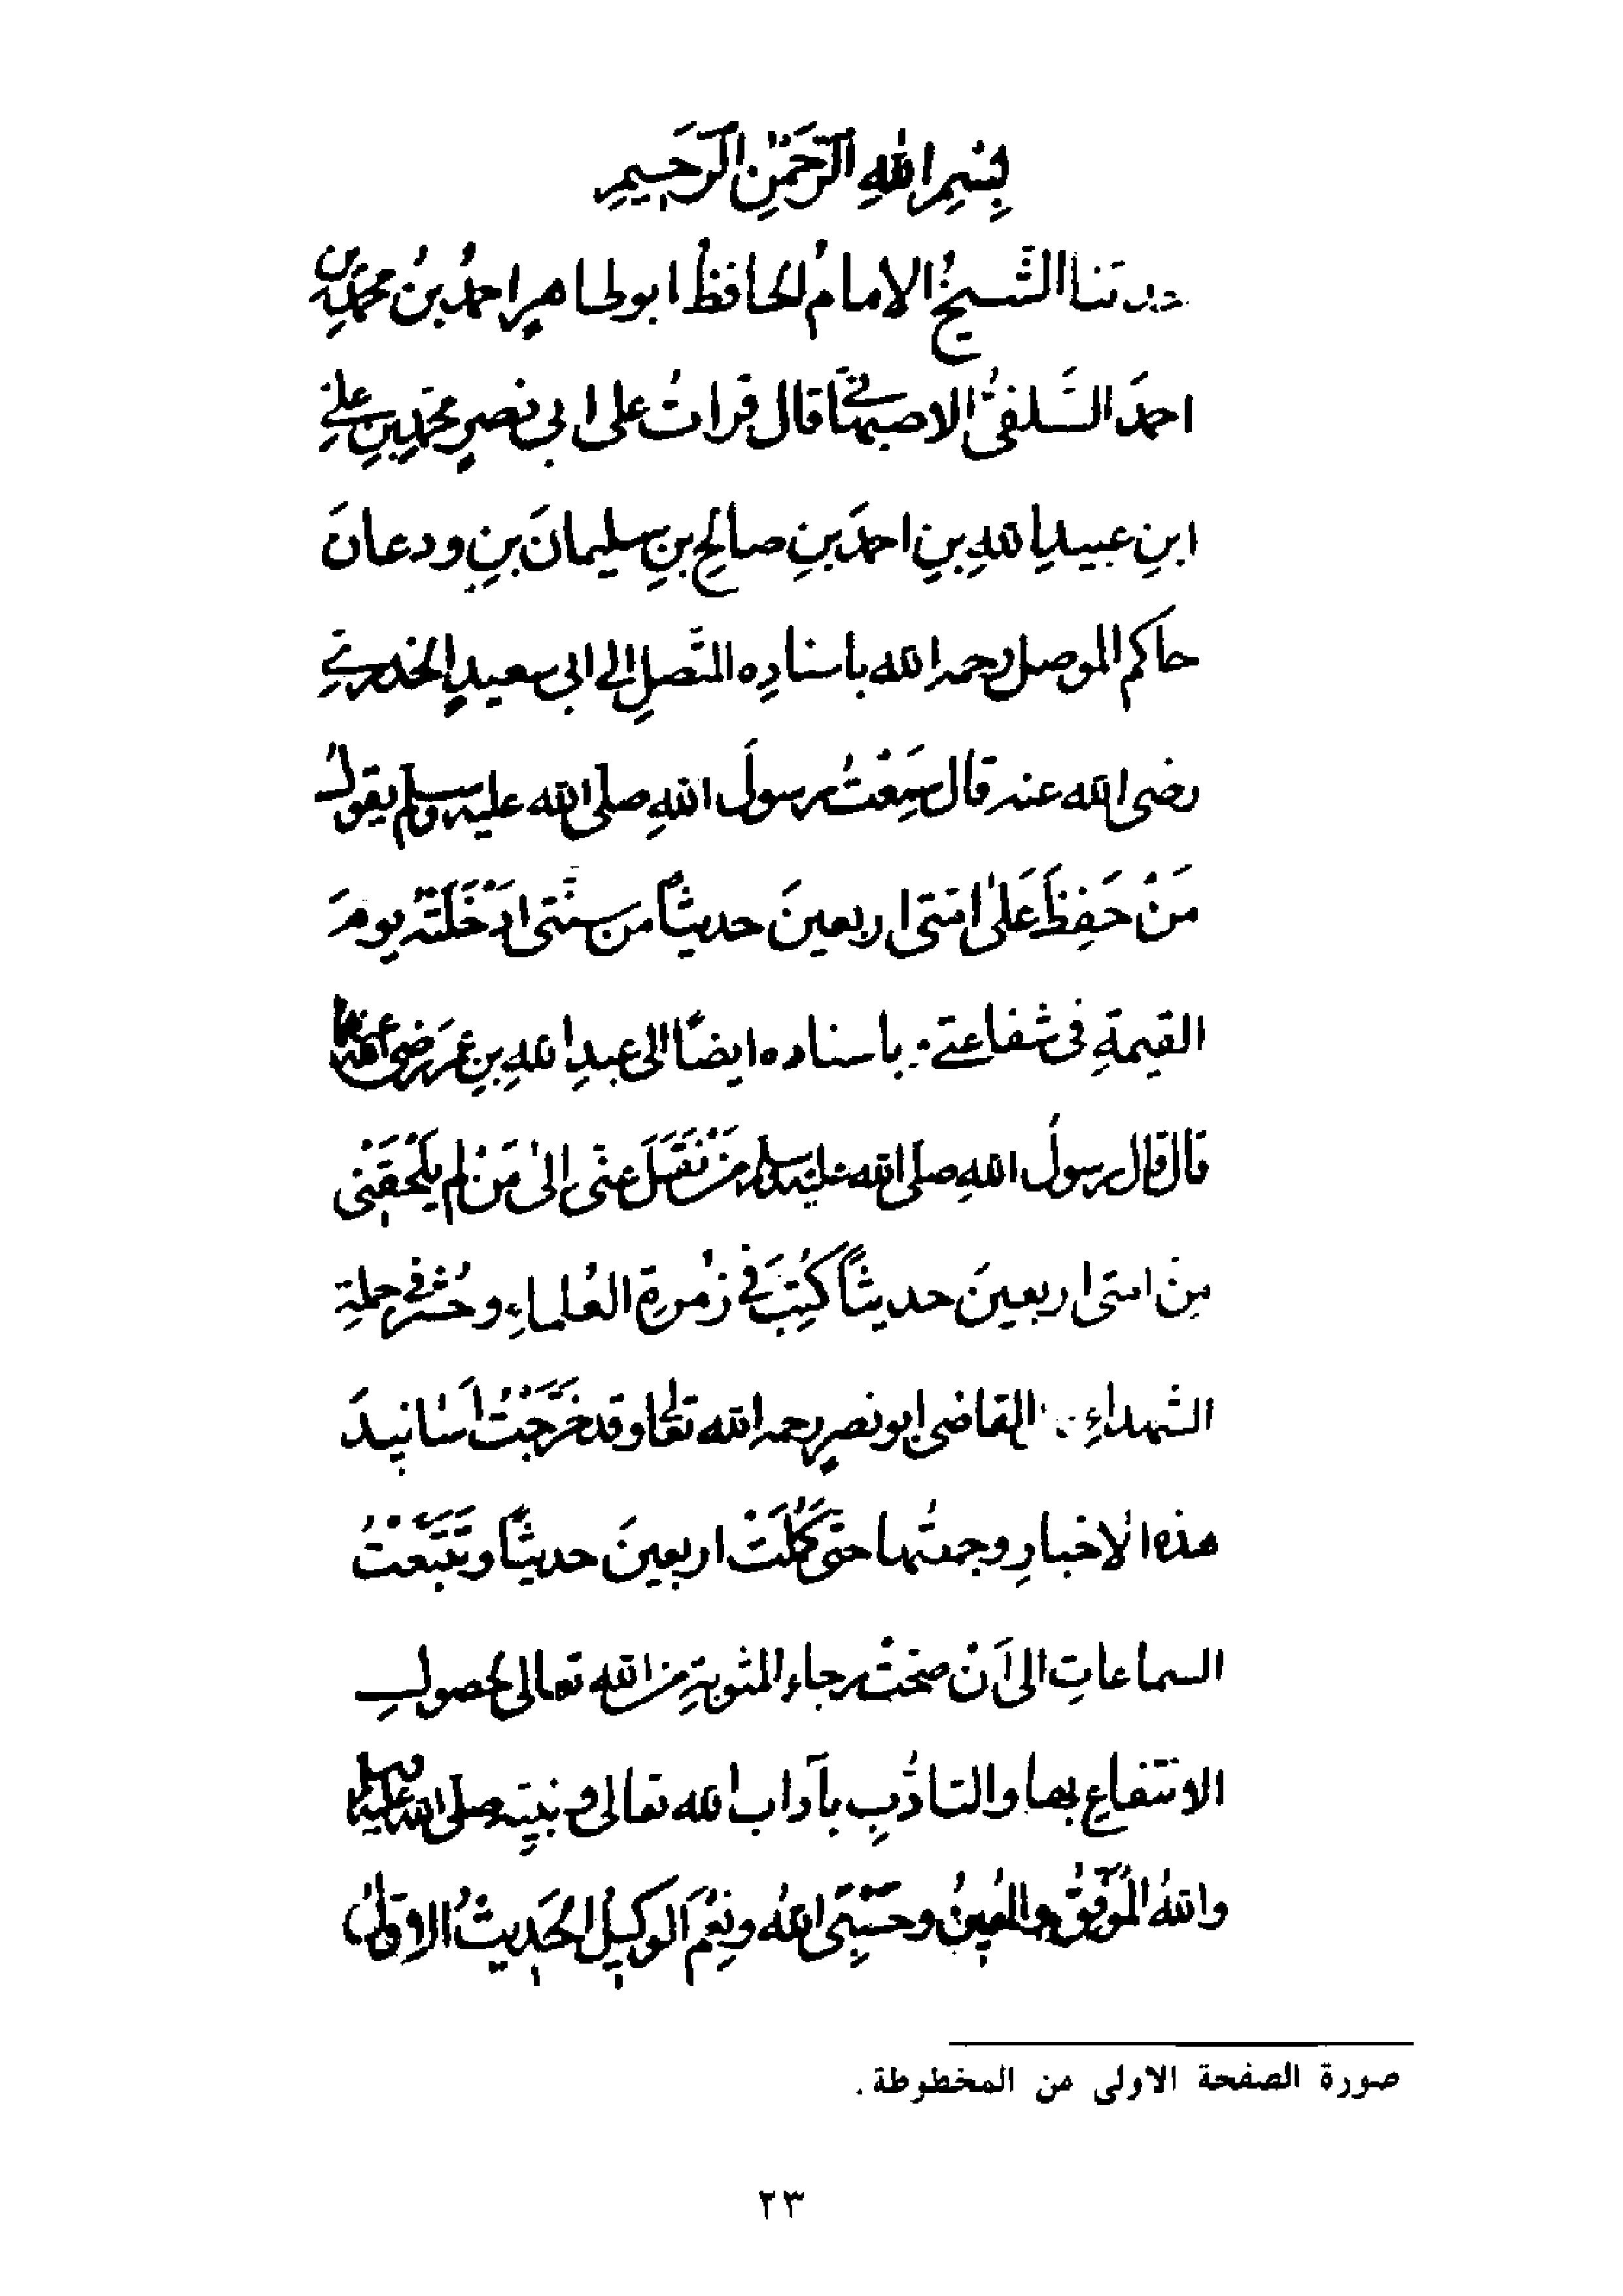 بِسْمِ اللهِ الرَّحْمٰنِ الرَّحِيمِ
حدثنا الشَّيخُ الامامُ الحافظُ ابو طاهرٍ احمدُ بنُ محمّدِ بن
احمدَ السَّلفيُّ الاصبهانيُّ قال قراتُ على ابي نصرٍ محمّدِ بنِ عليِّ
ابنِ عبيدِ اللهِ بنِ احمدَ بنِ صالحِ بنِ سليمانَ بنِ ودعانَ
حاكم الموصل رحمه الله باسنادِه المتَّصلِ الى ابي سعيدٍ الخدريّ
رضى الله عنه قال سَمِعْتُ رسولَ اللهِ صلى الله عليه وسلم يقولُ
مَنْ حَفِظَ عَلٰى امتى اربعينَ حديثاً من سنَّتى ادْخَلْتُه يومَ
القيمةِ في شفاعتي. باسناده ايضاً الى عبدِ اللهِ بنِ عمرَ رضي الله عنهما
قال قال رسولُ اللهِ صلى الله عليه وسلم مَنْ نَقَلَ عنّى الىٰ مَنْ لم يَلْحَقْنِى
مِنَ امتى اربعينَ حديثاً كُتِبَ فى زُمرةِ العُلماءِ وحُشر فى جملةِ
الشهداءِ . القاضى ابو نصرٍ رحمه الله تعالى وقد خَرَّجْتُ اَسَانيدَ
هذه الاخبارِ وجمعتُها حتى كَمُلَتْ اربعينَ حديثاً وتَتَبَّعْتُ
السماعاتِ الى اَنْ صحّتْ رجاء المثوبةِ من الله تعالى لحصولِ
الانتفاعِ بها والتادُّبِ بآداب الله تعالى و نبيّهِ صلى الله عليه وسلم
واللهُ المُوَفِّقُ والمُعِينُ وحَسْبِىَ اللهُ ونِعْمَ الوَكِيلُ الحَدِيثُ الاوّلُ
صورة الصفحة الاولى من المخطوطة .
٢٣